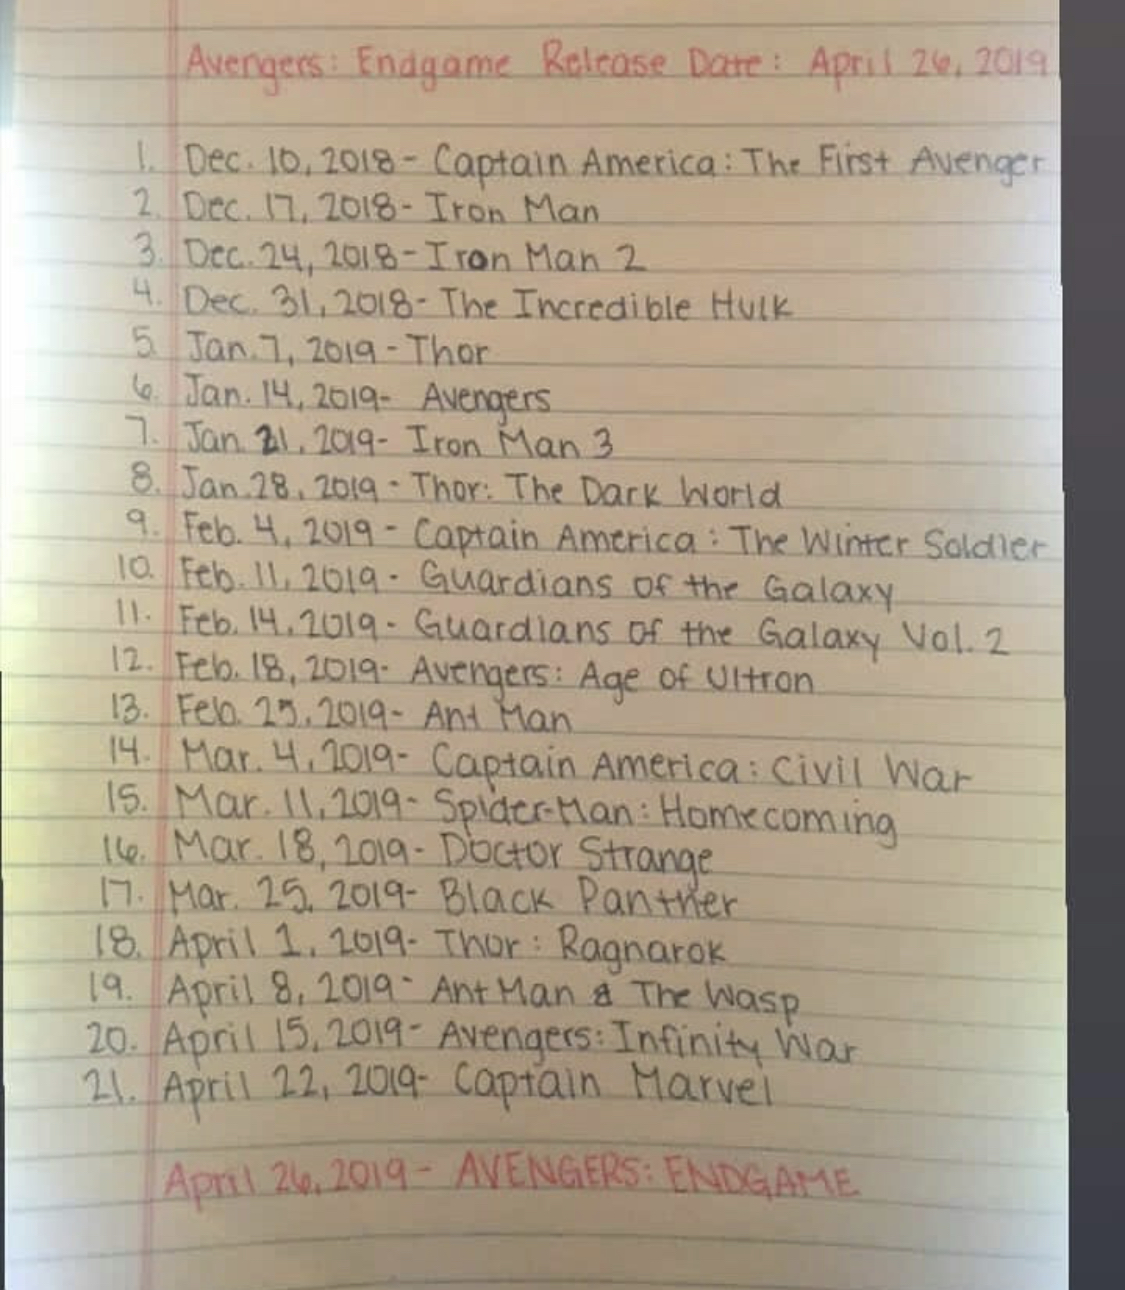 Avengers: Endgame Release Date: April 26, 2019
1. Dec. 10, 2018- Captain America: The First Avenger
2. Dec. 17, 2018- Iron Man
3. Dec. 24, 2018- Iron Man 2
4. Dec. 31, 2018- The Incredible Hulk
5. Jan. 7, 2019- Thor
6. Jan. 14, 2019- Avengers
7. Jan 21, 2019- Iron Man 3
8. Jan. 28, 2019- Thor: The Dark World
9. Feb. 4, 2019- Captain America: The Winter Soldier
10. Feb. 11, 2019- Guardians of the Galaxy
11. Feb. 14, 2019- Guardians of the Galaxy Vol. 2
12. Feb. 18, 2019- Avengers: Age of Ultron
13. Feb. 25, 2019- Ant Man
14. Mar. 4, 2019- Captain America: Civil War
15. Mar. 11, 2019- Spider-Man: Homecoming
16. Mar. 18, 2019- Doctor Strange
17. Mar. 25, 2019- Black Panther
18. April 1, 2019- Thor: Ragnarok
19. April 8, 2019- Ant Man & The Wasp
20. April 15, 2019- Avengers: Infinity War
21. April 22, 2019- Captain Marvel
April 26, 2019- AVENGERS: ENDGAME